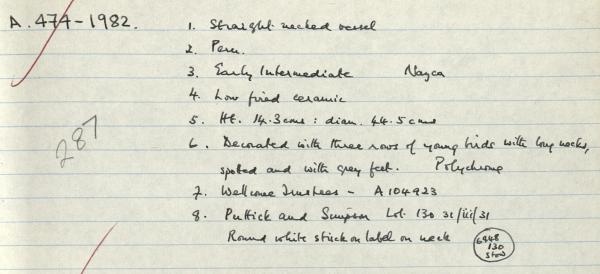 A. 474-1982.
1. Straight-necked vessel
2. Peru.
3. Early Intermediate Nazca
4. Low fired ceramic
5. Ht. 14.3 cms : diam. 44.5 cms
6. Decorated with three rows of young birds with long necks,
spotted and with grey feet. Polychrome
7. Wellcome Trustees - A 104923
8. Puttick and Simpson Lot. 130 31/iii/31
Round white stuck on label on neck
6948
130
287